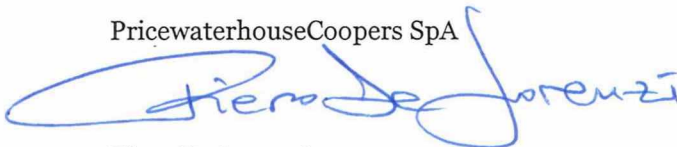 PricewaterhouseCoopers SpA
Piero De Lorenzi